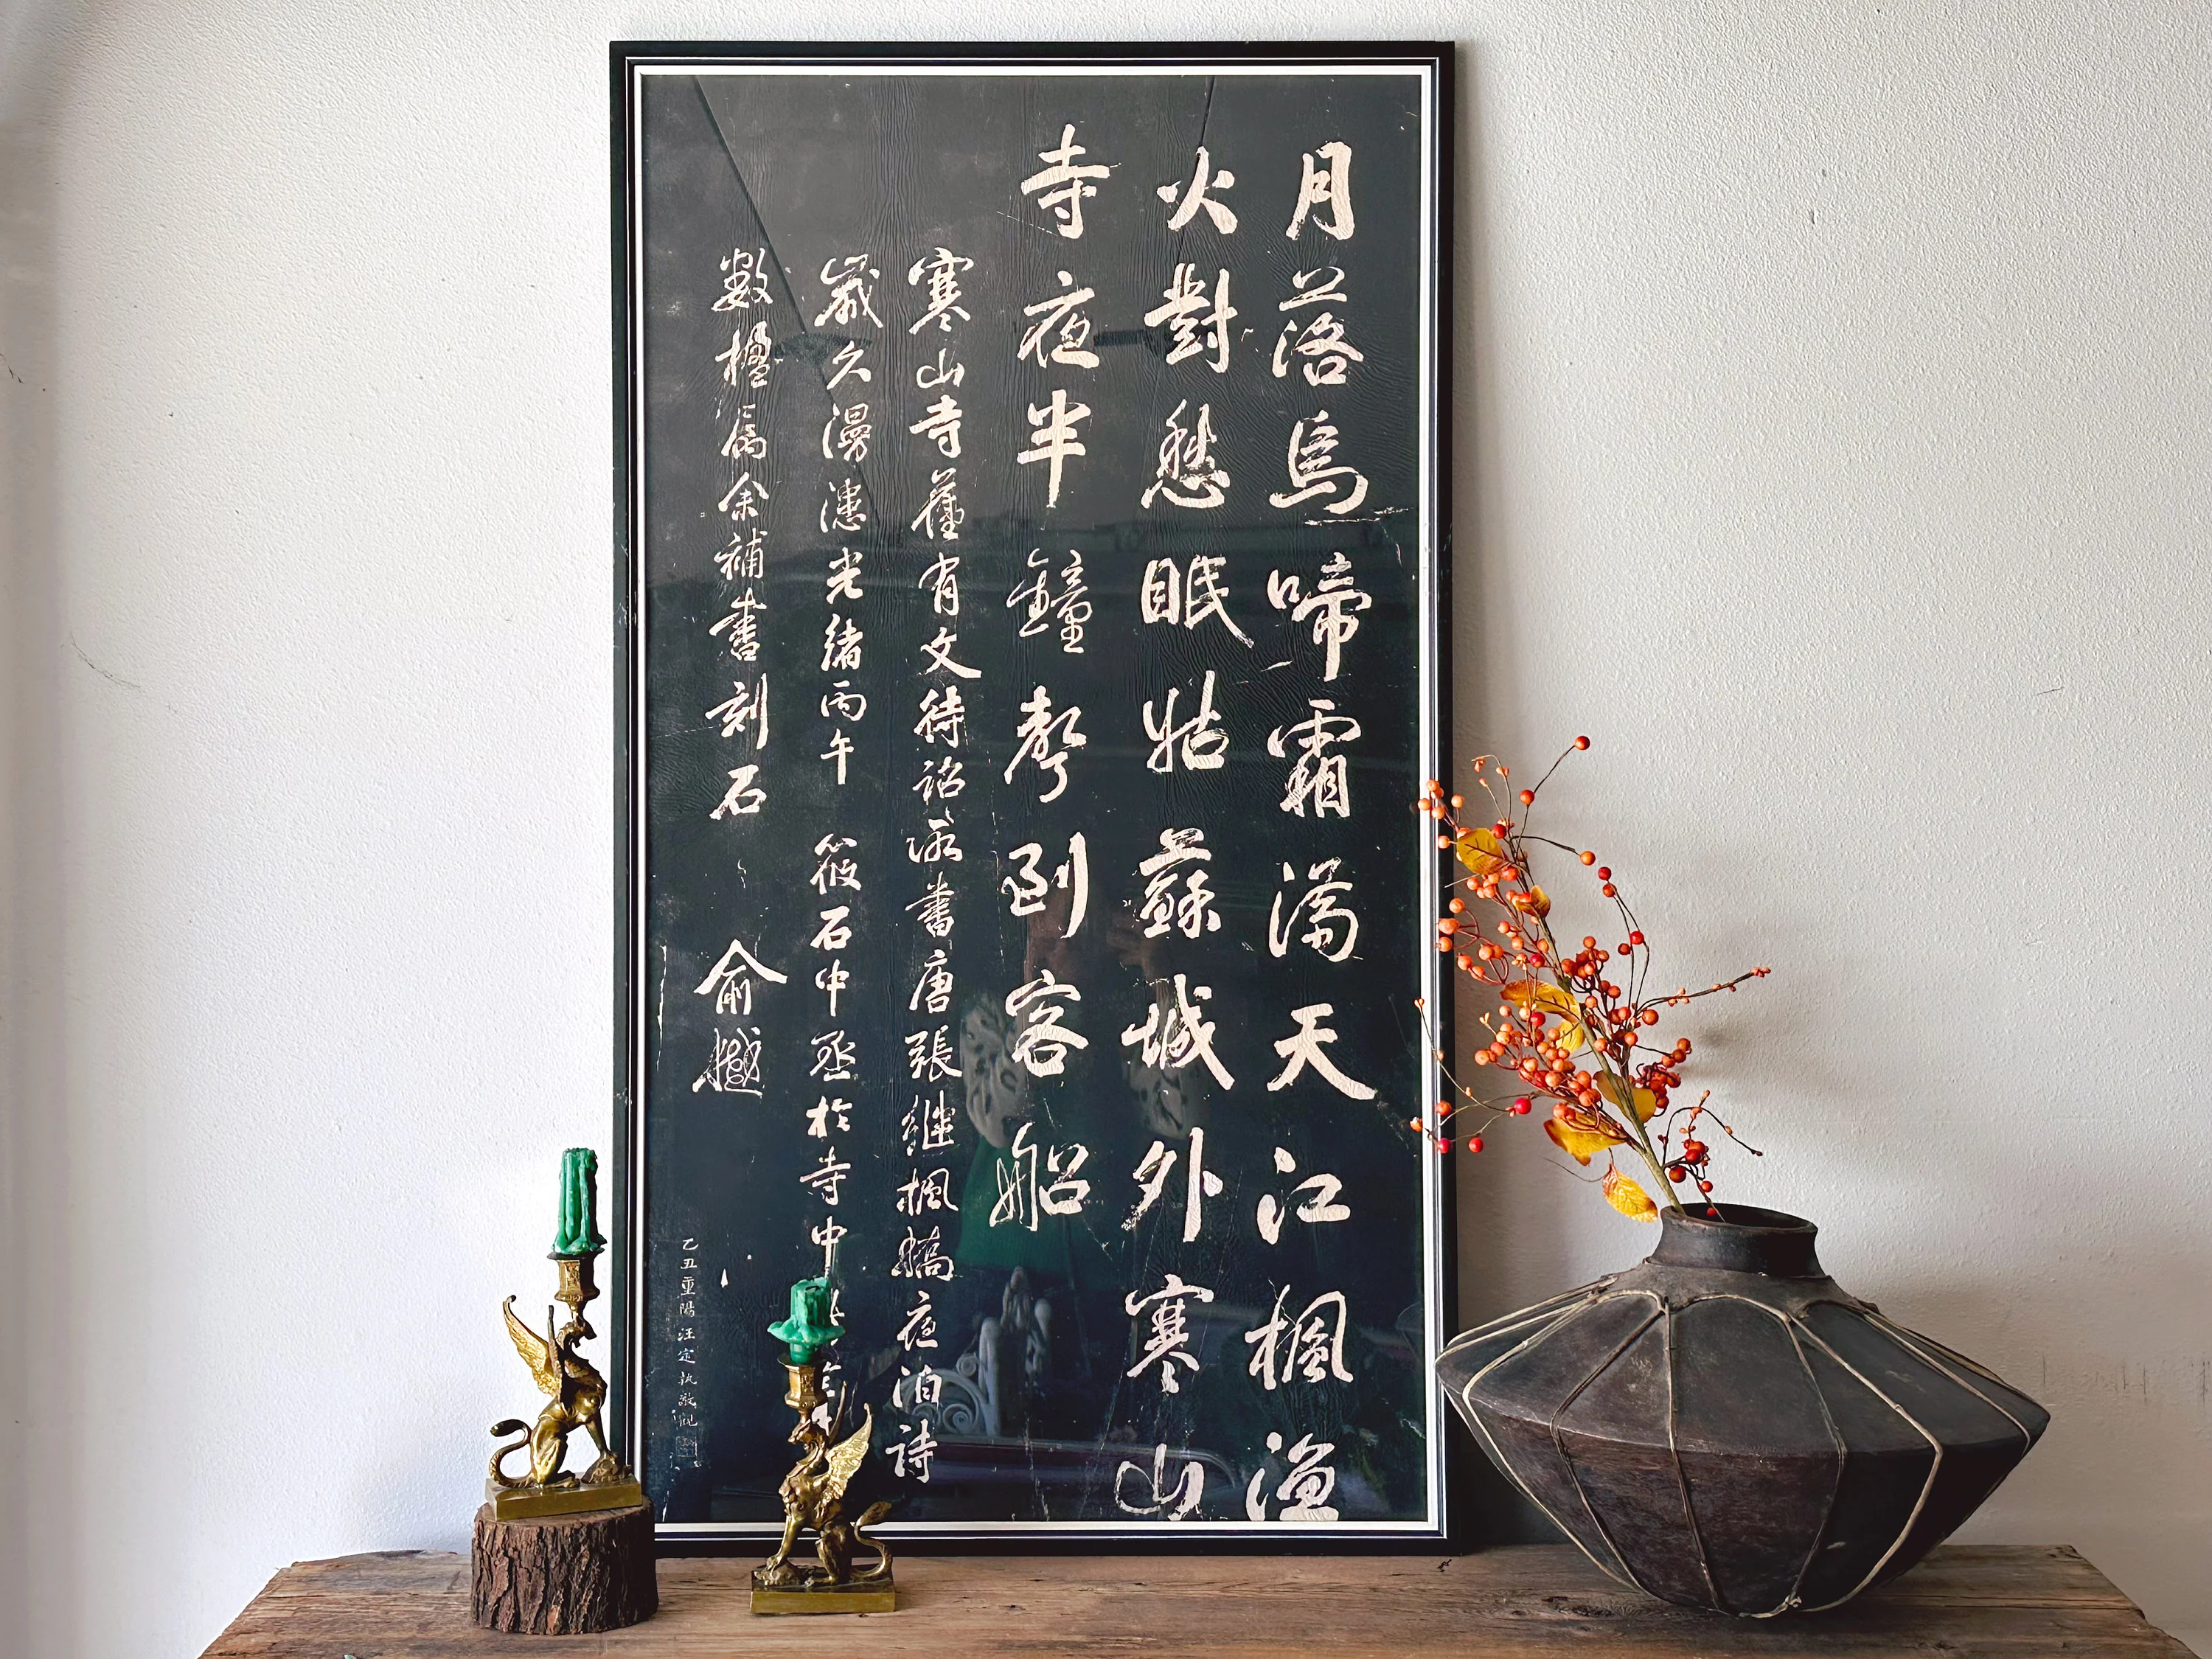 月落烏啼霜滿天江楓漁
火對愁眠姑蘇城外寒山
寺夜半鐘聲到客船
寒山寺舊有文待詔所書唐張繼楓橋夜泊詩
歲久漫漶光緒丙午 筱石中丞於寺中
數楹屬余補書刻石 俞樾
乙丑重陽汪定執敬觀